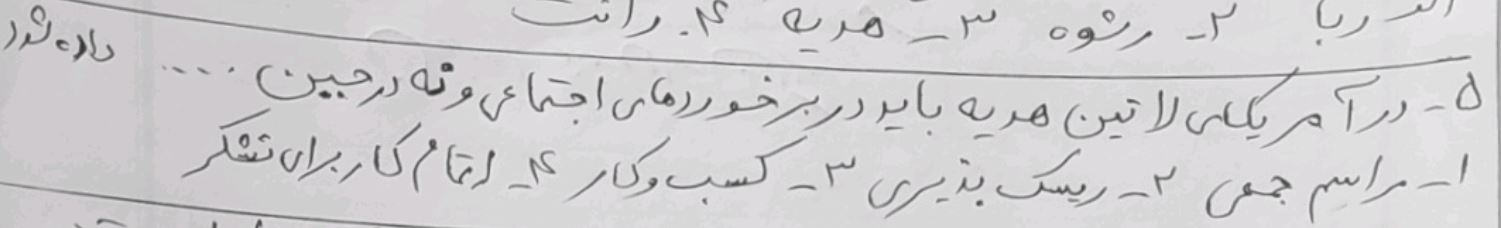 ربا ۲- رشوه ۳- هدیه ۴. رانت
۵- در آمریکای لاتین هدیه باید در برخوردهای اجتماعی و نه در حین .... داده شود
۱- مراسم جمعی ۲- ریسک پذیری ۳- کسب و کار ۴- اتمام کار برای تشکر